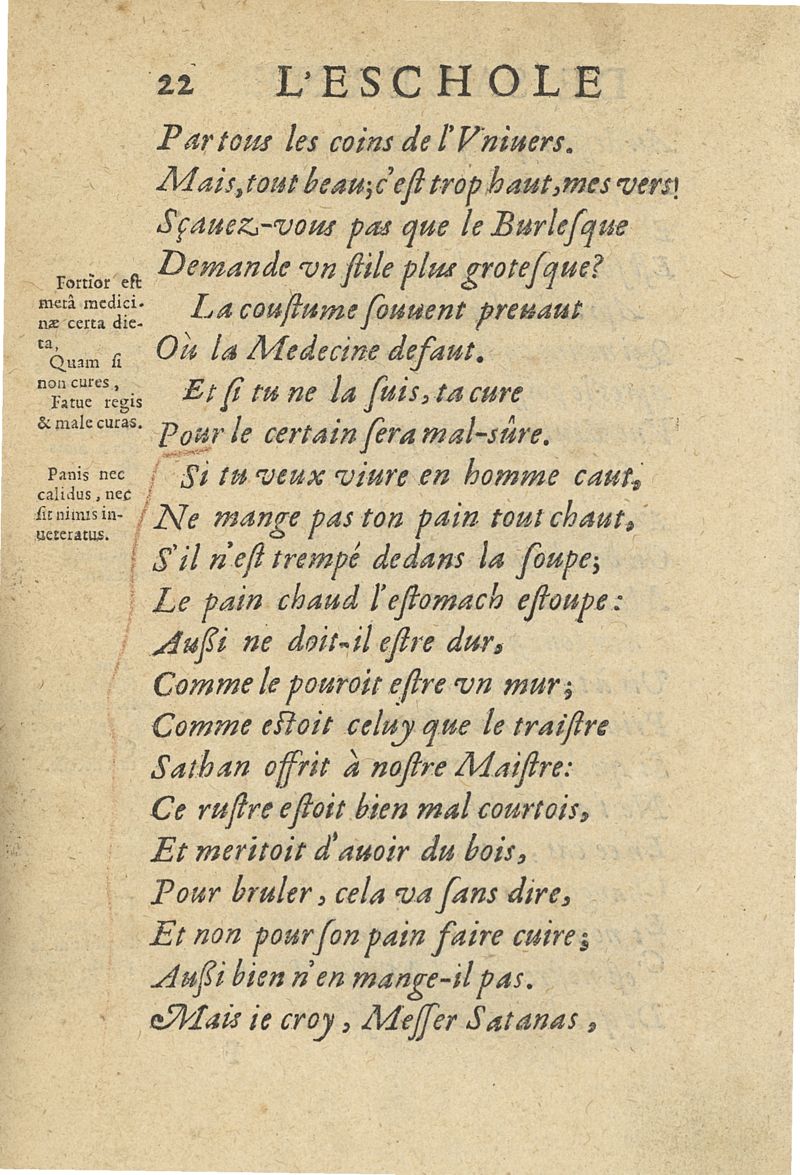 22 L'ESCHOLE
Par tous les coins de l'Vniuers.
Mais, tout beau; c'est trop haut, mes vers!
Sçauez-vous pas que le Burlesque
Demande vn stile plus grotesque?
La coustume souuent preuaut
Où la Medecine defaut.
Et si tu ne la suis, ta cure
Pour le certain sera mal-sûre.
Si tu veux viure en homme caut,
Ne mange pas ton pain tout chaut,
S'il n'est trempé dedans la soupe;
Le pain chaud l'estomach estoupe:
Außi ne doit-il estre dur,
Comme le pouroit estre vn mur;
Comme estoit celuy que le traistre
Sathan offrit à nostre Maistre:
Ce rustre estoit bien mal courtois,
Et meritoit d'auoir du bois,
Pour bruler, cela va sans dire,
Et non pour son pain faire cuire;
Außi bien n'en mange-il pas.
Mais ie croy, Messer Satanas,
Fortior est
metâ medici-
næ certa die-
ta,
Quam si
non cures,
Fatue regis
& male curas.
Panis nec
calidus, nec
sit nimis in-
ueteratus.